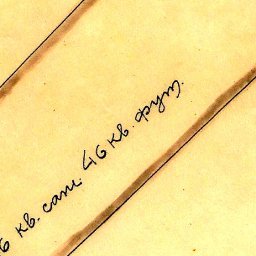 6 кв. саж. 46 кв. фут.